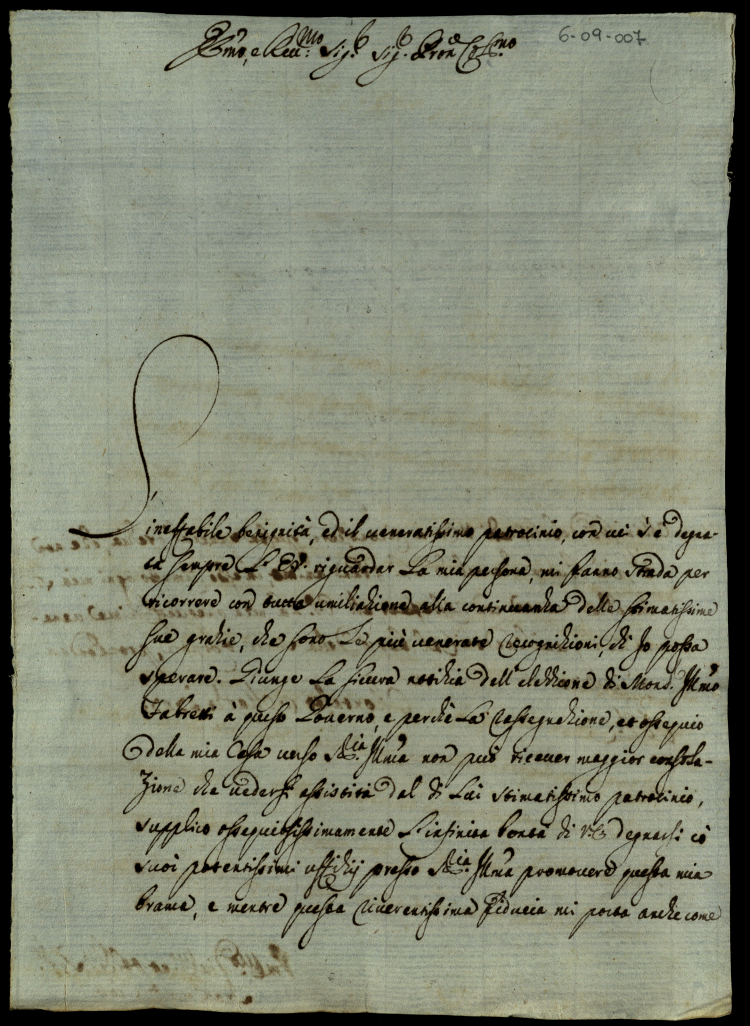 Emo, e Reu:mo Sig.r Sig.r Pron Col.mo
6-09-007
L'
ineffabile benignità, ed il ueneratissimo patrocinio, con cui s'è degna-
ta sempre L'E.V. riguardar la mia persona, mi fanno strada per
ricorrere con tutta umiliazione alla continuanza delle stimatissime
sue grazie, che sono le più uenerate recognizioni, ch'Io possa
sperare. Giunge la sicura notizia dell'elezzione di Mons.r Illmo
Fabretti à questo Gouerno, e perche la rassegnazione, et ossequio
della mia Casa uerso S.S.ia Illma non può riceuer maggior consola-
zione che uedersi assistita dal di Lui stimatissimo patrocinio,
supplico ossequiosissimamente l'infinita bontà di V.E. degnarsi co'
suoi potentissimi uffizij presso S.S.ia Illma promouere questa mia
brama, e mentre questa riuerentissima fiducia mi porta anche come